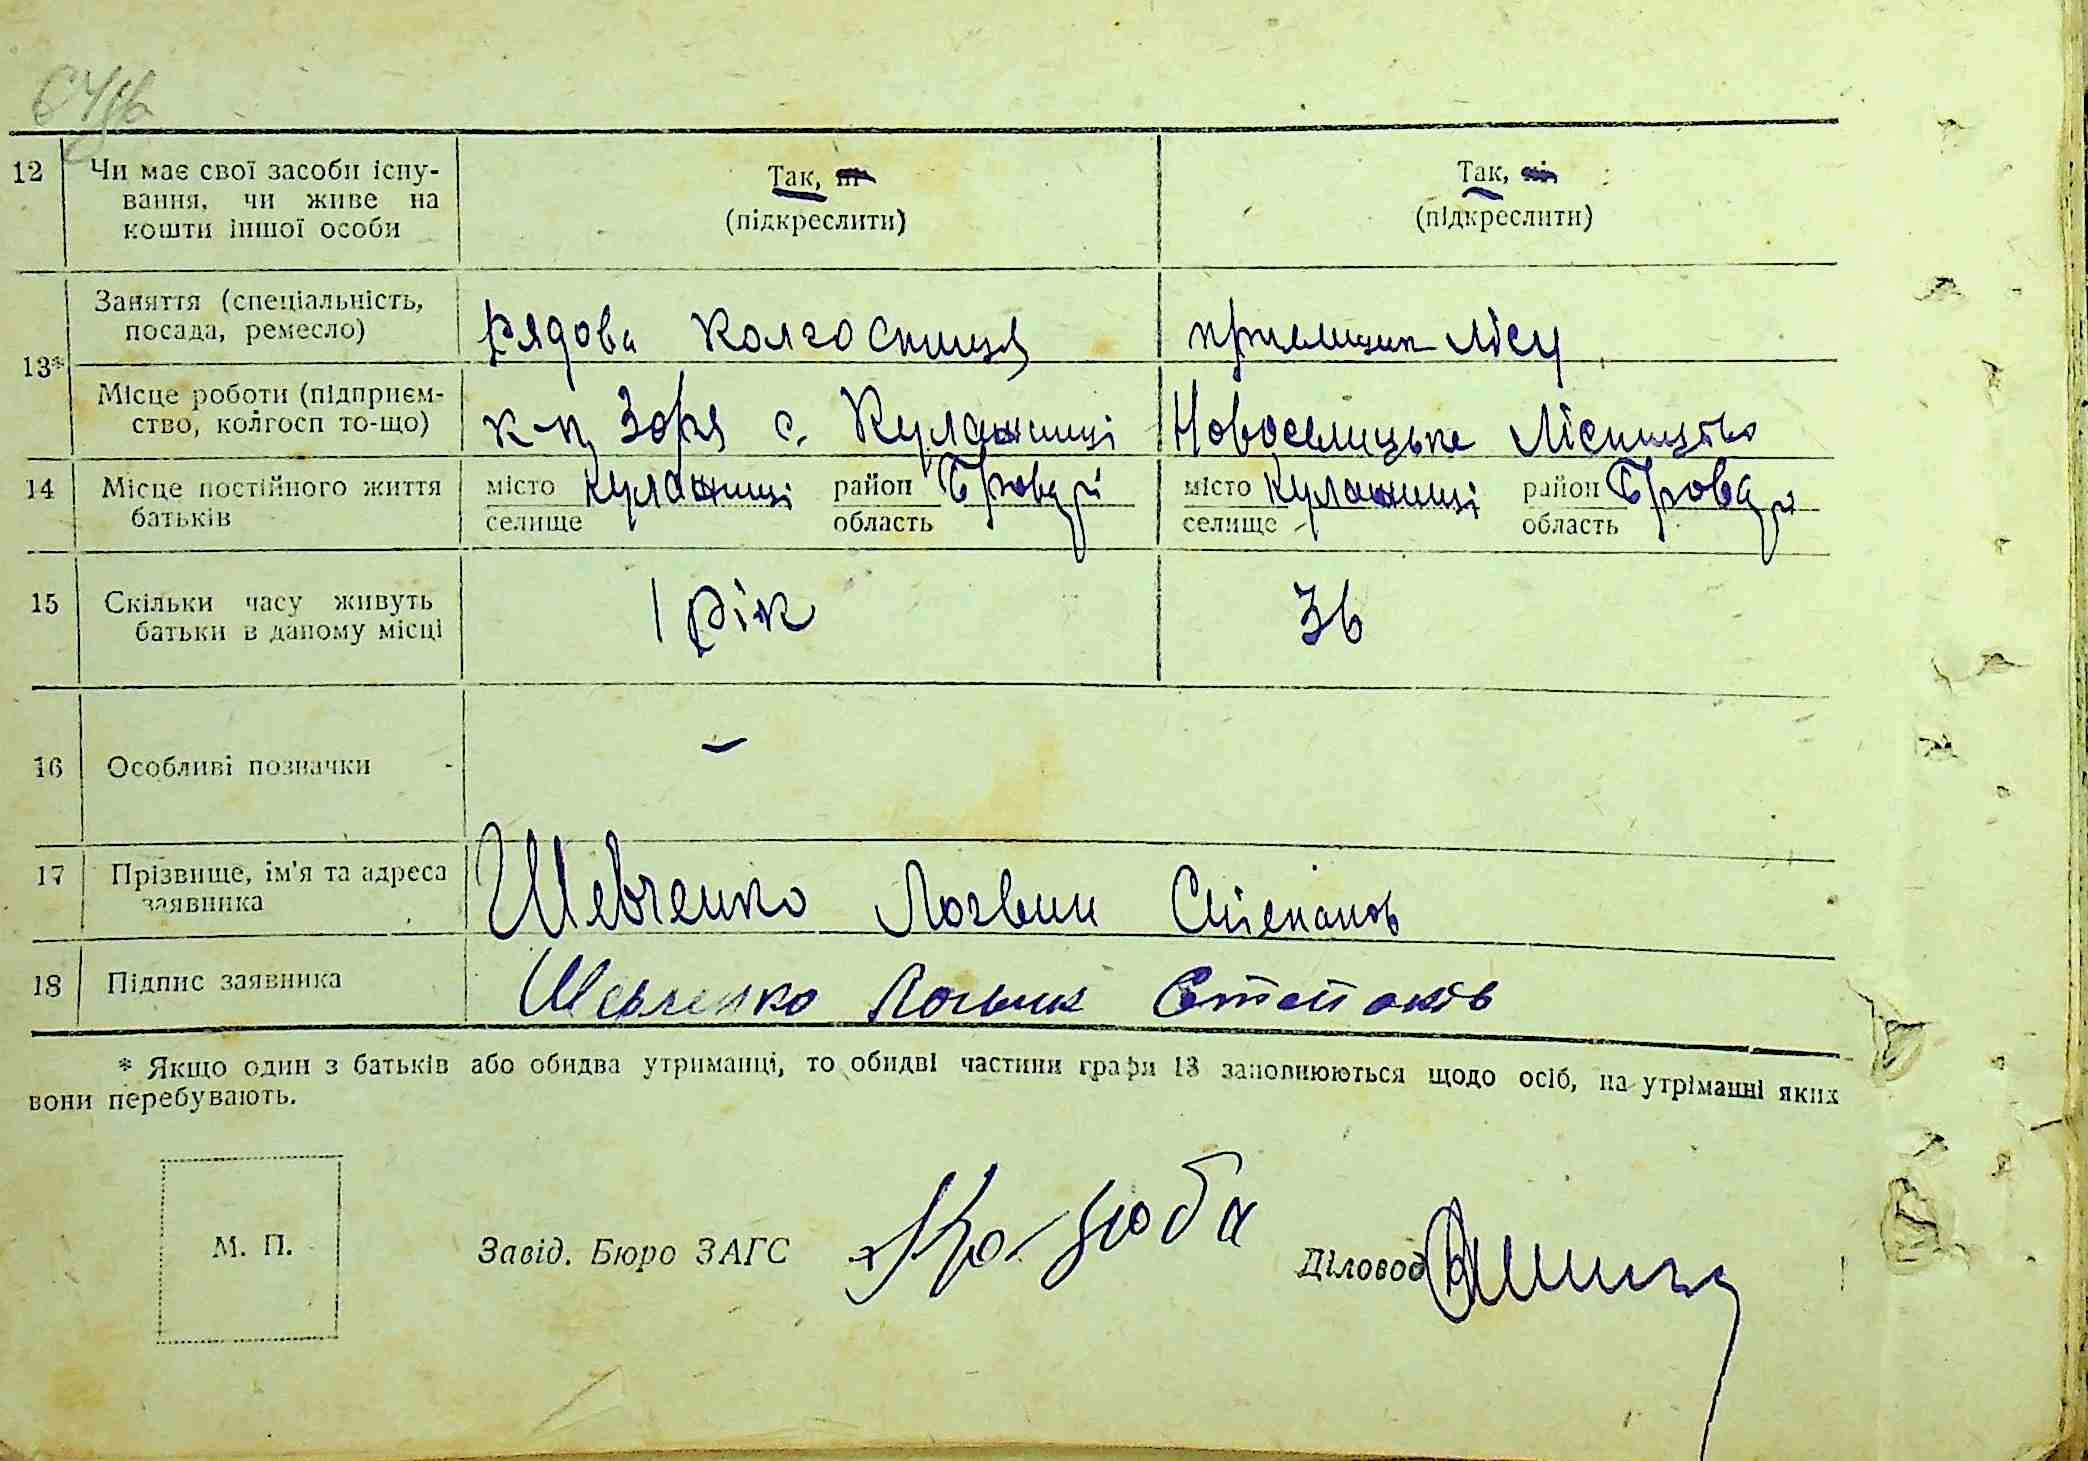 12 Чи має свої засоби існу- Так, ні Так, ні,
вання, чи живе на (підкреслити) (підкреслити)
кошти іншої особи
Заняття (спеціальність, рядова колгоспниця приємщик лісу
посада, ремесло)
13*
Місце роботи (підприєм- к-п Зоря с. Кулажинці Новоселицьке Лісництво
ство, колгосп то-що)
14 Місце постійного життя місто Кулажинці район Бровари місто Кулажинці район Бровар
батьків селище область селище область
15 Скільки часу живуть 1 рік 36
батьки в даному місці
16 Особливі позначки -
17 Прізвище, ім'я та адреса Шевченко Логвин Степанов
заявника
18 Підпис заявника Шевченко Логвин Степанов
* Якщо один з батьків або обидва утриманці, то обидві частини графи 13 заповнюються щодо осіб, на утріманні яких
вони перебувають.
М. П. Завід. Бюро ЗАГС Діловод